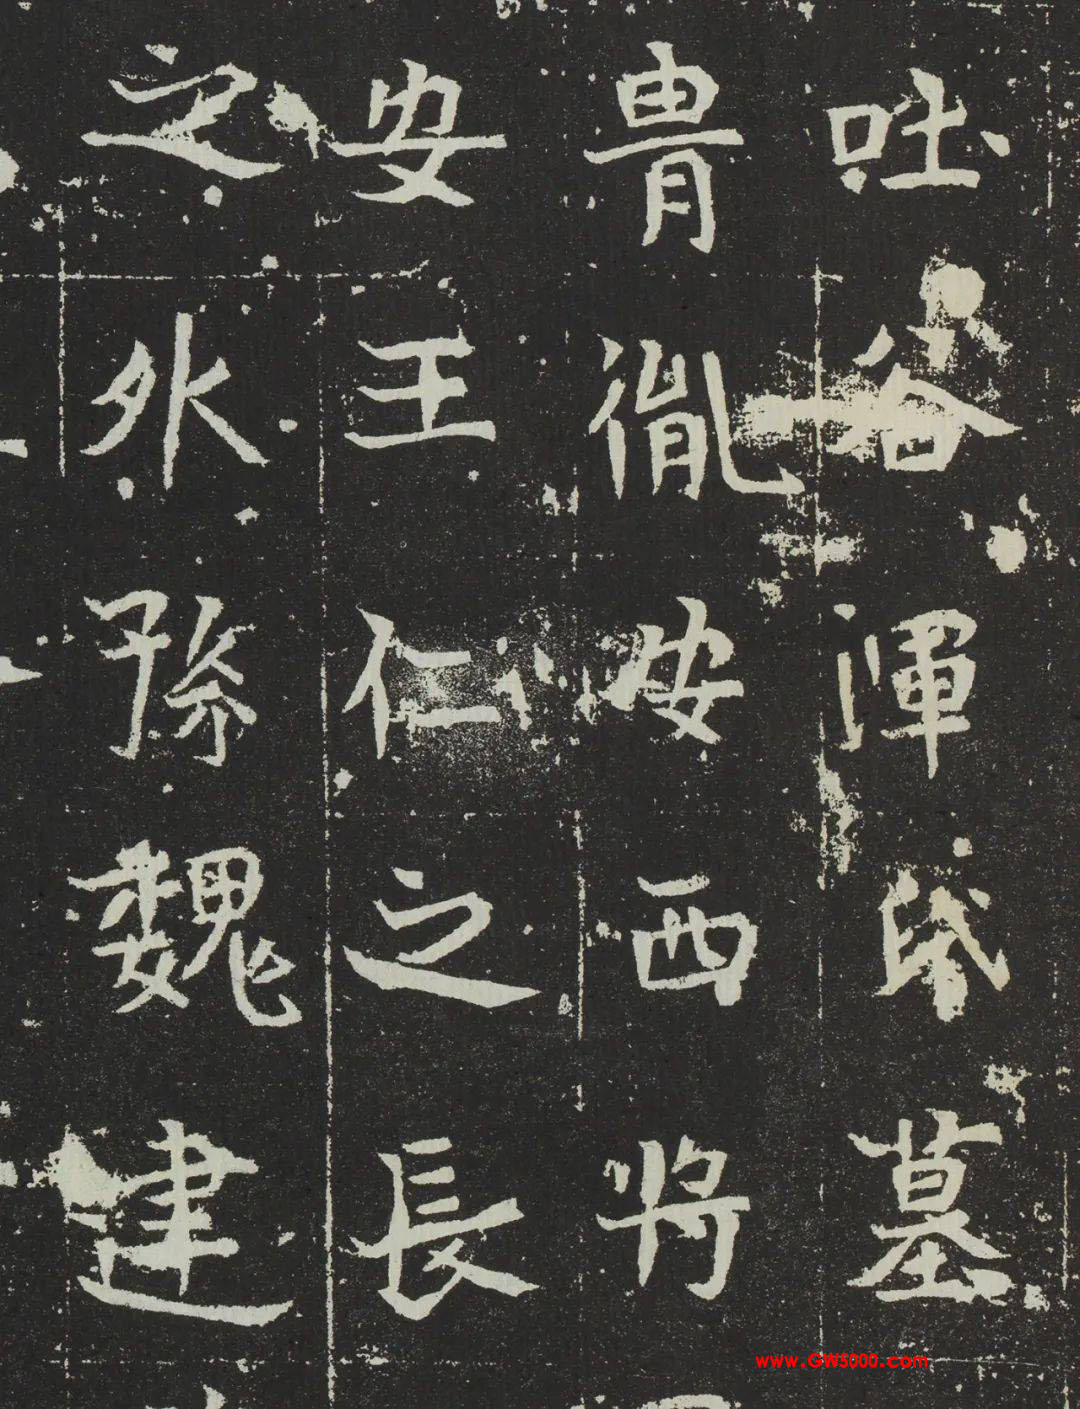 吐谷渾氏墓
冑胤安西将
安王仁之長
之外孫魏建
www.GW5000.com